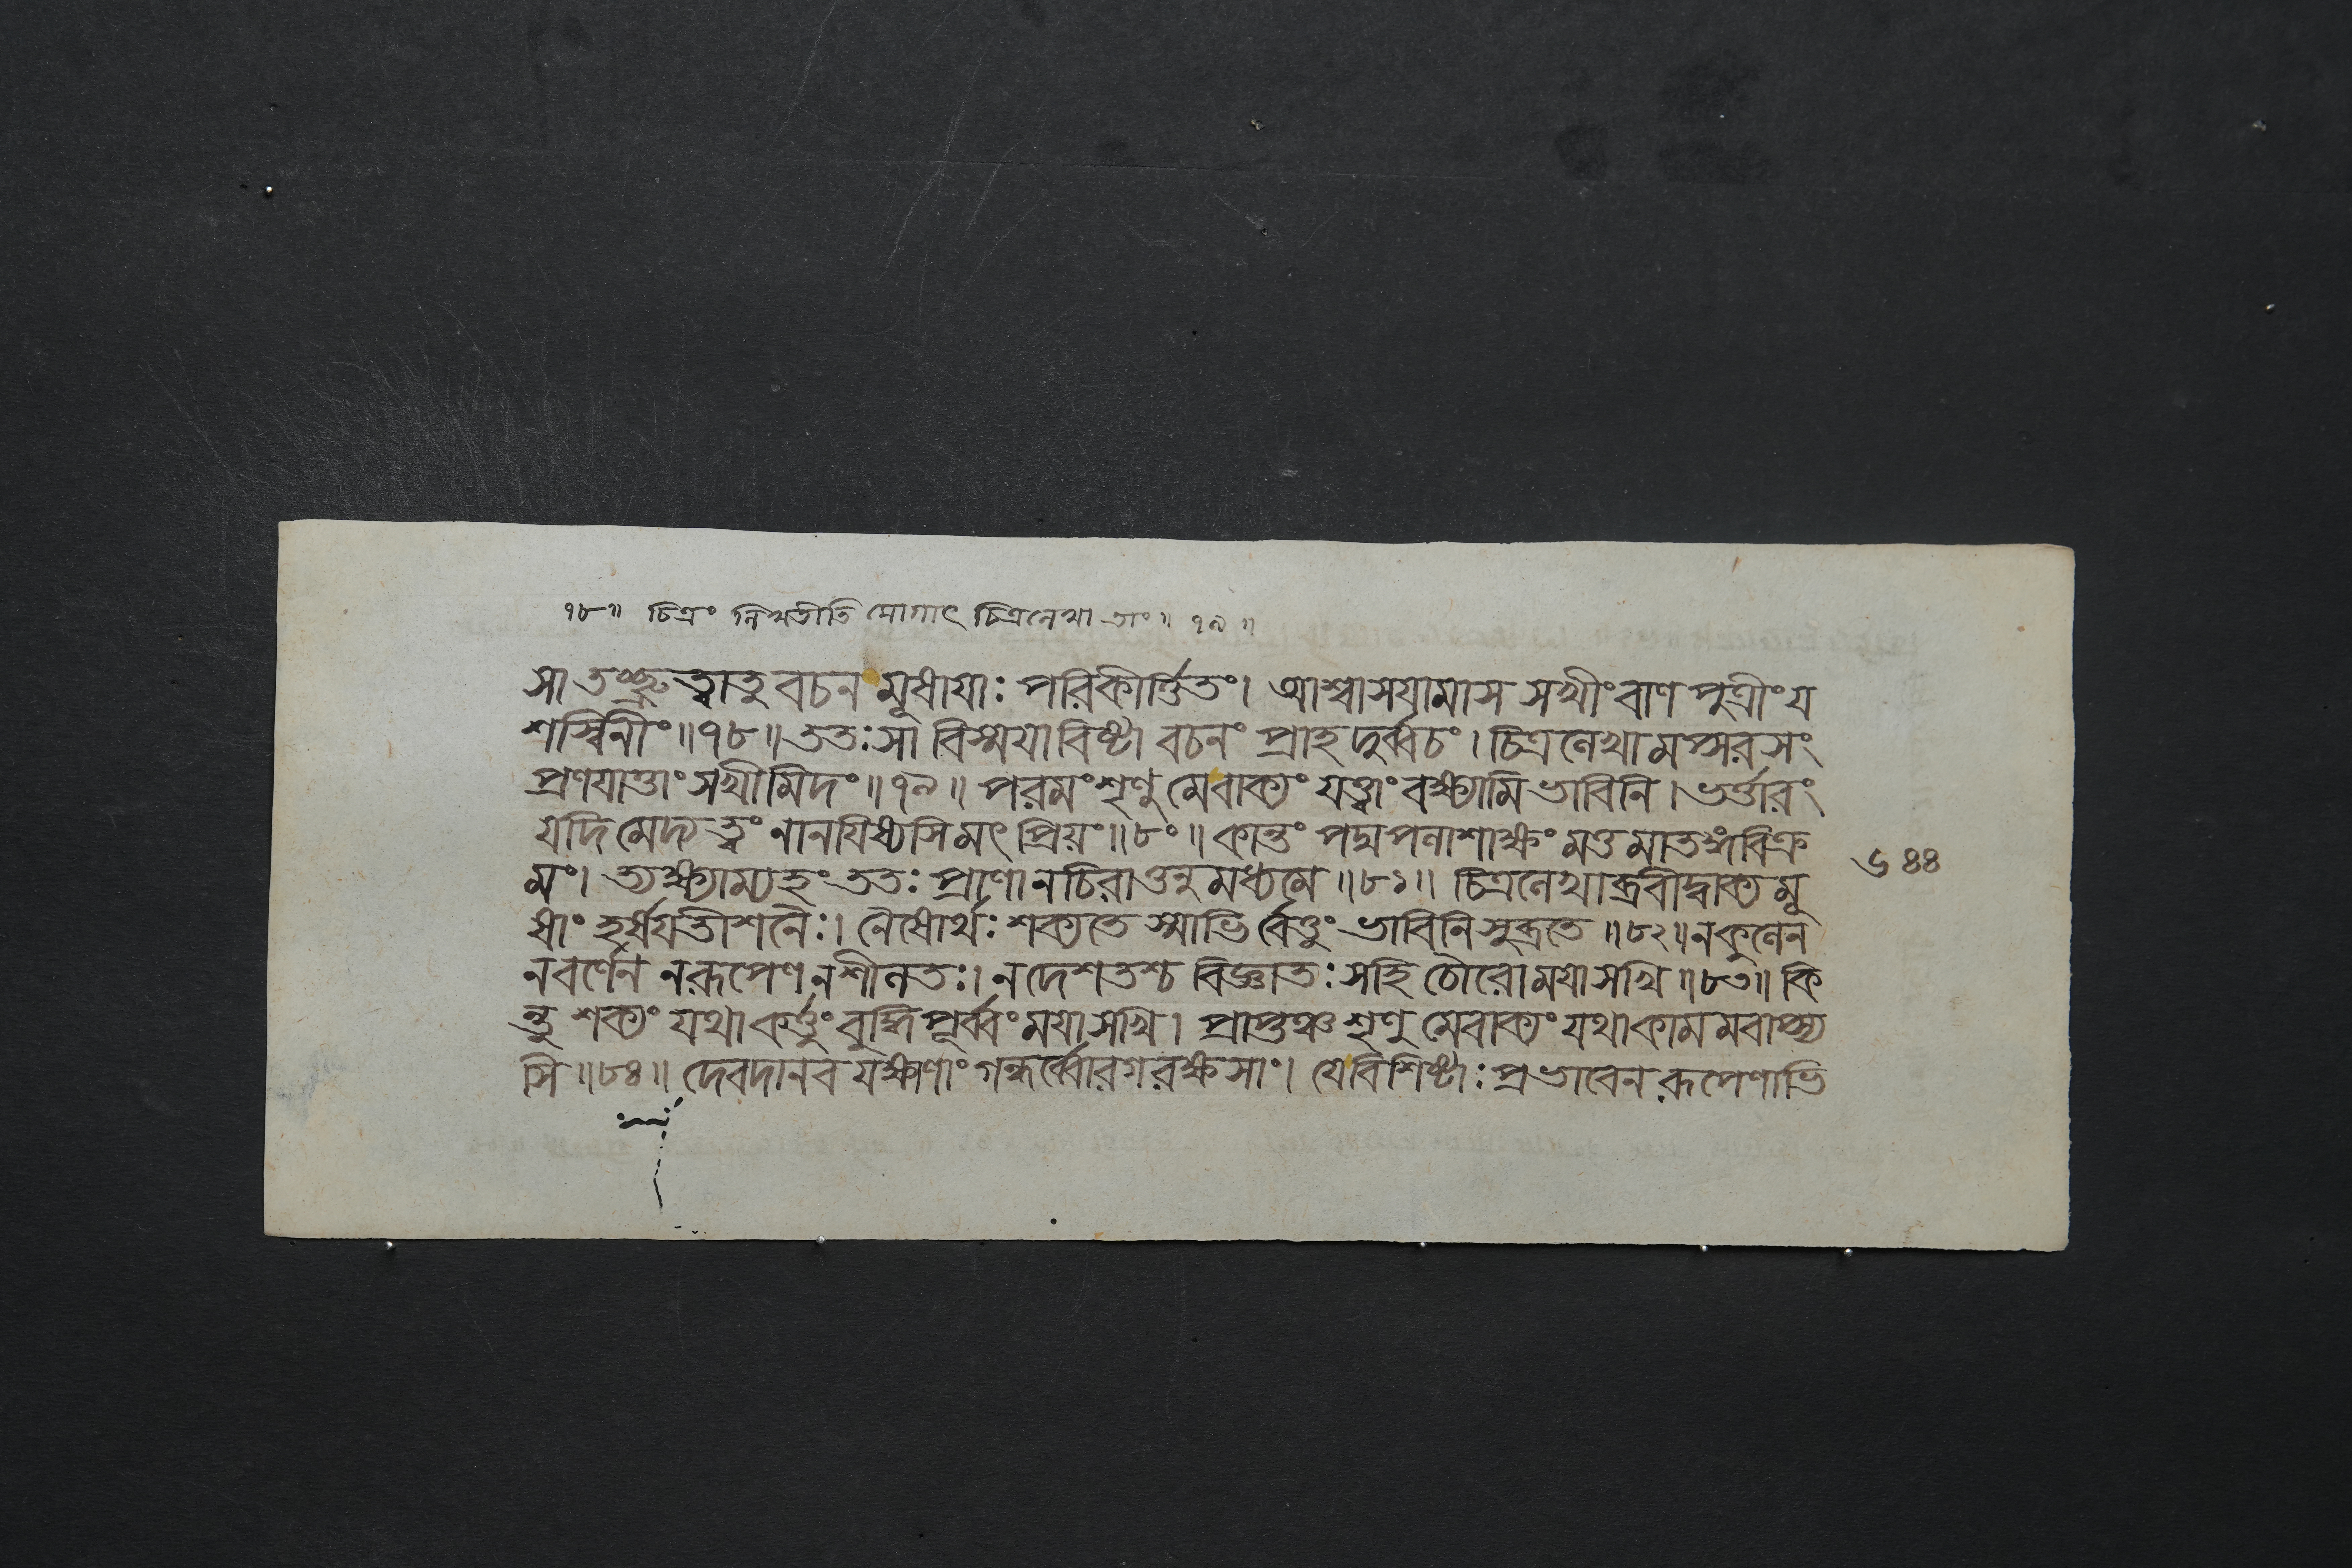 ৭৮॥ চিত্রং লিখতীতি যোগাৎ চিত্রলেখা তাং॥ ৭৯॥
সা তচ্ছ্রুত্বা তু বচনমূষায়াঃ পরিকীর্ত্তিতং। আশ্বাসয়ামাস সখীং বাণপুত্রীং য
শস্বিনীং॥৭৮॥ ততঃ সা বিস্ময়াবিষ্টা বচনং প্রাহ দুর্ব্বচং। চিত্রলেখামপ্সরসং
প্রণয়াত্তাং সখীমিদং॥৭৯॥ পরমং শৃণু মে বাক্যং যত্ত্বাং বক্ষ্যামি ভাবিনি। ভর্ত্তারং
যদি মেদ্য ত্বং নানয়িষ্যসি মৎপ্রিয়ং॥৮০॥ কান্তং পদ্মপলাশাক্ষং মত্তমাতঙ্গবিক্র
মং। ত্যক্ষ্যাম্যহং ততঃ প্রাণানচিরাত্তনুমধ্যমে॥৮১॥ চিত্রলেখাব্রবীদ্বাক্যমূ
ষাং হর্ষয়তী শনৈঃ। নৈষোর্থঃ শক্যতেস্মাভির্বেত্তুং ভাবিনি সুব্রতে॥৮২॥ ন কুলেন
ন বর্ণেন ন রূপেণ ন শীলতঃ। ন দেশতশ্চ বিজ্ঞাতঃ স হি চৌরো ময়া সখি॥৮৩॥ কি
ন্তু শক্যং যথা কর্ত্তুং বুদ্ধিপূর্ব্বং ময়া সখি। প্রাপ্তঞ্চ শৃণু মে বাক্যং যথাকামমবাপ্স্য
সি॥৮৪॥ দেবদানবযক্ষাণাং গন্ধর্ব্বোরগরক্ষসাং। যে বিশিষ্টাঃ প্রভাবেন রূপেণাভি
৬৪৪